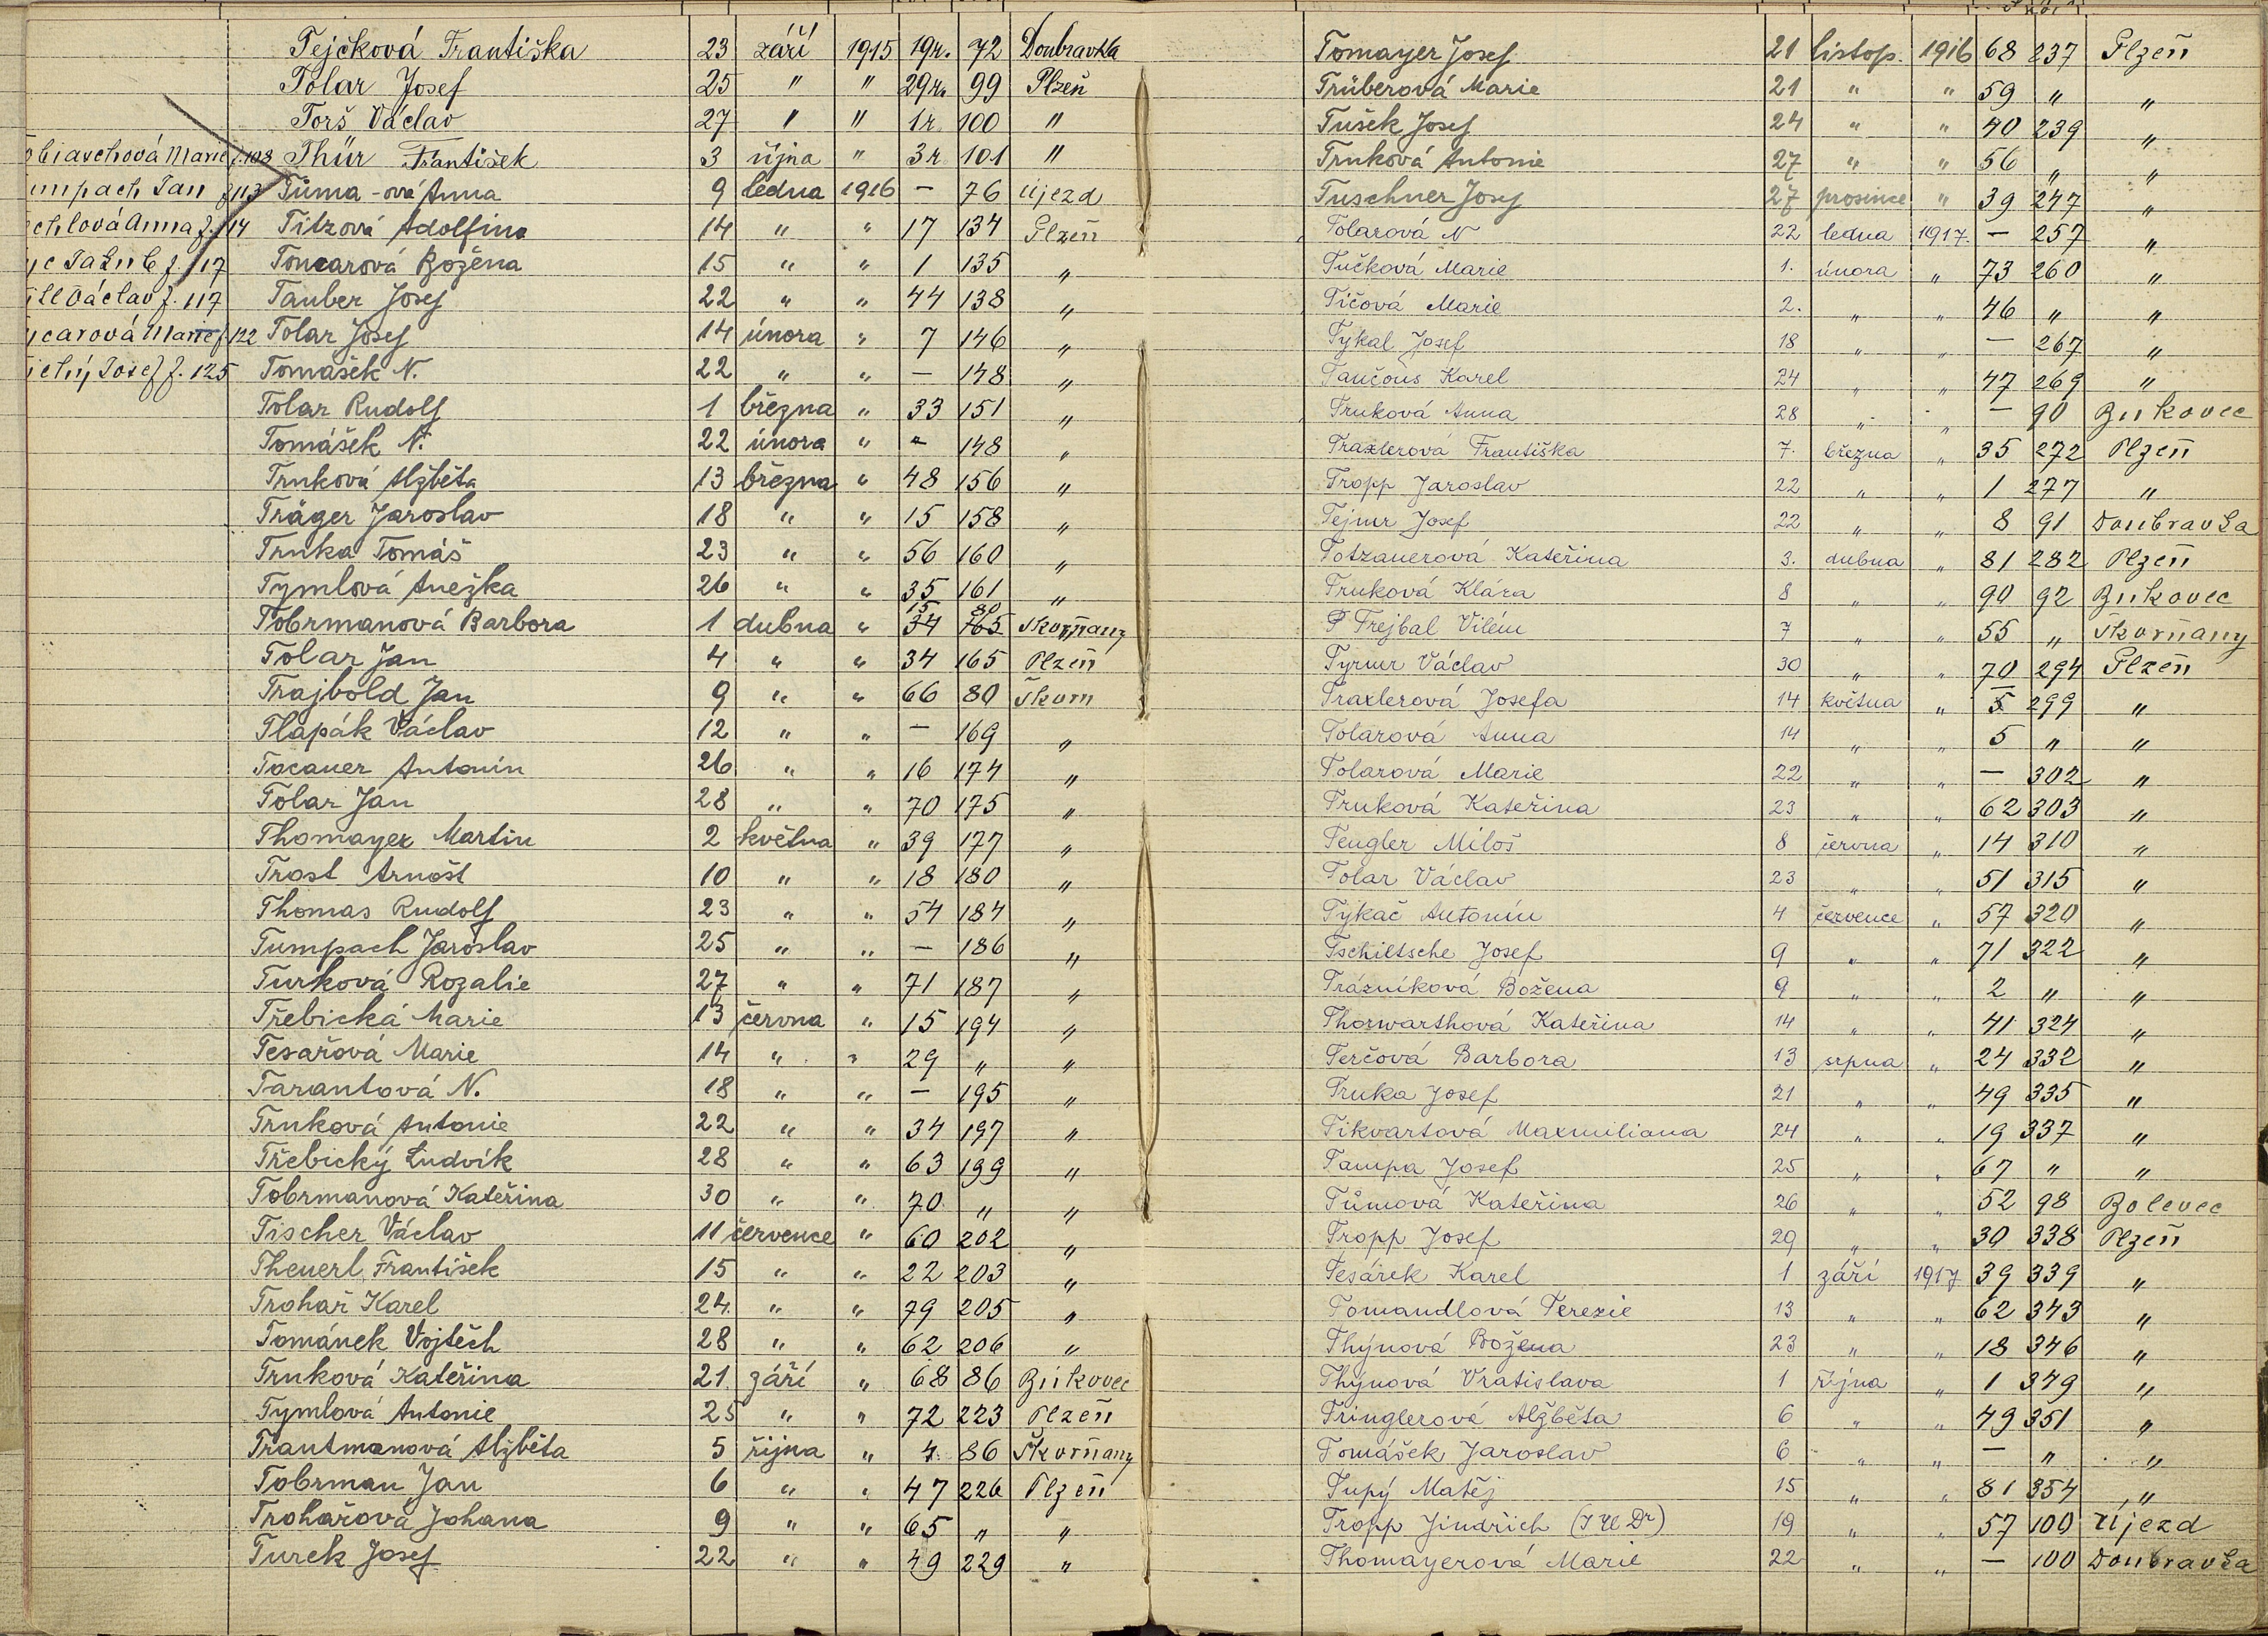 Tejčková Františka 23 září 1915 19r. 72 Doubravka
Tolar Josef 25 " " 29r. 99 Plzeň
Torš Václav 27 " " 1r. 100 "
Thür František 3 října " 3r 101 "
Tůma-ová Anna 9 ledna 1916 – 76 Újezd
Titzová Adolfina 14 " " 17 134 Plzeň
Toncarová Božena 15 " " 1 135 "
Tauber Josef 22 " " 44 138 "
Tolar Josef 14 února " 7 146 "
Tomášek N. 22 " " – 148 "
Tolar Rudolf 1 března " 33 151 "
Tomášek N. 22 února " – 148 "
Trnková Alžběta 13 března " 48 156 "
Träger Jaroslav 18 " " 15 158 "
Trnka Tomáš 23 " " 56 160 "
Tymlová Anežka 26 " " 35 161 "
15 80
Tobrmanová Barbora 1 dubna " 34 165 Skvrňany
Tolar Jan 4 " " 34 165 Plzeň
Trajbold Jan 9 " " 66 80 Škvrn
Tlapák Václav 12 " " – 169 "
Tocauer Antonín 26 " " 16 174 "
Tolar Jan 28 " " 70 175 "
Thomayer Martin 2 května " 39 177 "
Trost Arnošt 10 " " 18 180 "
Thomas Rudolf 23 " " 54 184 "
Tumpach Jaroslav 25 " " – 186 "
Turková Rozalie 27 " " 71 187 "
Třebická Marie 13 června " 15 194 "
Tesařová Marie 14 " " 29 " "
Tarantová N. 18 " " – 195 "
Trnková Antonie 22 " " 34 197 "
Třebický Ludvík 28 " " 63 199 "
Tobrmanová Kateřina 30 " " 70 " "
Tischer Václav 11 července " 60 202 "
Theuerl František 15 " " 22 203 "
Trohař Karel 24. " " 79 205 "
Tománek Vojtěch 28 " " 62 206 "
Trnková Kateřina 21 září " 68 86 Bukovec
Tymlová Antonie 25 " " 72 223 Plzeň
Trantmanová Alžběta 5 října " 4 86 Škvrňany
Tobrman Jan 6 " " 47 226 Plzeň
Trohařová Johana 9 " " 65 " "
Turek Josef 22 " " 49 229 "
obiaschová Marie f. 108
umpach Jan f 113
chlová Anna f. 114
yc Jakub f. 117
ill Václav f. 117
ycarová Marie f. 122
ichý Josef f. 125
Tomayer Josef 21 listop. 1916 68 237 Plzeň
Trüberová Marie 21 " " 59 " "
Tušek Josef 24 " " 40 239 "
Trnková Antonie 27 " " 56 " "
Tuschner Josef 27 prosince " 39 247 "
Tolarová N 22 ledna 1917. – 257 "
Tučková Marie 1. února " 73 260 "
Tičová Marie 2. " " 46 " "
Tykal Josef 18 " " – 267 "
Taučous Karel 24 " " 47 269 "
Trnková Anna 28 " " – 90 Bukovec
Traxlerová Františka 7. března " 35 272 Plzeň
Tropp Jaroslav 22 " " 1 277 "
Tejmr Josef 22 " " 8 91 Doubravka
Totzauerová Kateřina 3. dubna " 81 282 Plzeň
Trnková Klára 8 " " 90 92 Bukovec
P Trejbal Vilém 7 " " 55 " Skvrňany
Tyrmr Václav 30 " " 70 294 Plzeň
Traxlerová Josefa 14 května " 5 299 "
Tolarová Anna 14 " " 5 " "
Tolarová Marie 22 " " – 302 "
Trnková Kateřina 23 " " 62 303 "
Tengler Miloš 8 června " 14 310 "
Tolar Václav 23 " " 51 315 "
Tykač Antonín 4 července " 57 320 "
Tschiltsche Josef 9 " " 71 322 "
Trázníková Božena 9 " " 2 " "
Thorwarthová Kateřina 14 " " 41 324 "
Terčová Barbora 13 srpna " 24 332 "
Trnka Josef 21 " " 49 335 "
Tikvartová Maxmiliana 24 " " 19 337 "
Tampa Josef 25 " " 67 " "
Tůmová Kateřina 26 " " 52 98 Bolevec
Tropp Josef 29 " " 30 338 Plzeň
Tesárek Karel 1 září 1917 39 339 "
Tomandlová Terezie 13 " " 62 343 "
Thýnová Božena 23 " " 18 346 "
Thýnová Vratislava 1 října " 1 349 "
Tringlerová Alžběta 6 " " 49 351 "
Tomášek Jaroslav 6 " " – " "
Tupý Matěj 15 " " 81 354 "
Tropp Jindřich (JUDr) 19 " " 57 100 Újezd
Thomayerová Marie 22 " " – 100 Doubravka